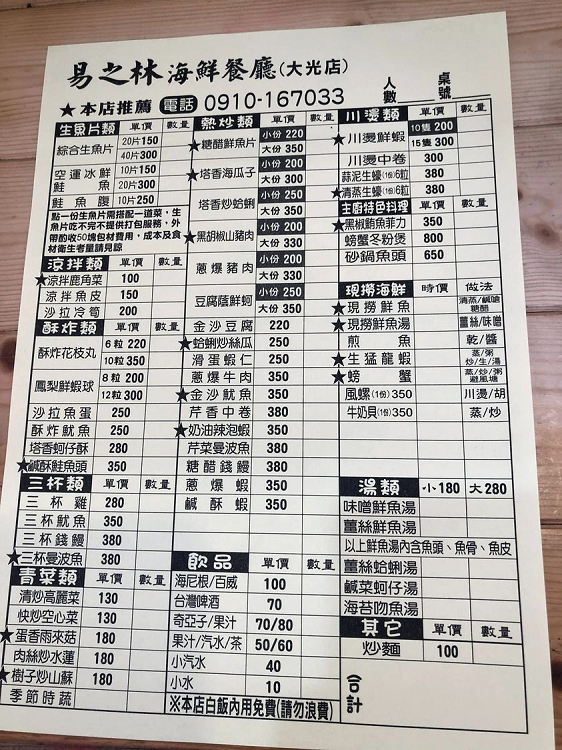 易之林海鮮餐廳(大光店)
人數 桌號
★本店推薦 電話 0910-167033
生魚片類 單價 數量
綜合生魚片 20片150
40片300
空運冰鮮鮭魚 10片150
20片300
鮭魚腹 10片250
點一份生魚片需搭配一道菜，生
魚片吃不完不提供打包服務，外
帶酌收50塊包材費用，成本及食
材衛生考量請見諒
涼拌類 單價 數量
★涼拌鹿角菜 100
涼拌魚皮 150
沙拉冷筍 200
酥炸類 單價 數量
酥炸花枝丸 6粒220
10粒350
鳳梨鮮蝦球 8粒200
12粒300
沙拉魚蛋 250
酥炸魷魚 250
塔香蚵仔酥 280
★鹹酥鮭魚頭 350
三杯類 單價 數量
三杯雞 280
三杯魷魚 350
三杯錢鰻 380
★三杯曼波魚 380
青菜類 單價 數量
清炒高麗菜 130
快炒空心菜 130
★蛋香雨來菇 180
肉絲炒水蓮 180
★樹子炒山蘇 180
季節時蔬
熱炒類 單價 數量
★糖醋鮮魚片 小份 220
大份 350
★塔香海瓜子 小份 200
大份 300
塔香炒蛤蜊 小份 250
大份 350
★黑胡椒山豬肉 小份 200
大份 330
蔥爆豬肉 小份 200
大份 330
豆腐蔭鮮蚵 小份 250
大份 350
金沙豆腐 220
★蛤蜊炒絲瓜 250
滑蛋蝦仁 250
蔥爆牛肉 350
★金沙魷魚 350
芹香中卷 380
★奶油辣泡蝦 350
芹菜曼波魚 380
糖醋錢鰻 380
蔥爆蝦 350
鹹酥蝦 350
飲品 單價 數量
海尼根/百威 100
台灣啤酒 70
奇亞子/果汁 70/80
果汁/汽水/茶 50/60
小汽水 40
小水 10
※本店白飯內用免費(請勿浪費)
川燙類 單價 數量
★川燙鮮蝦 10隻 200
15隻 300
川燙中卷 300
蒜泥生蠔(1份)6粒 380
★清蒸生蠔(1份)6粒 380
主廚特色料理 單價 數量
★黑椒鮪魚菲力 350
螃蟹冬粉煲 800
砂鍋魚頭 650
現撈海鮮 時價 做法
★現撈鮮魚 清蒸/鹹嗆 糖醋
★現撈鮮魚湯 薑絲/味噌
煎魚 乾/醬
★生猛龍蝦 蒸/粥 炒/生/湯
★螃蟹 蒸/炒/粥 避風塘
風螺(1份) 350 川燙/胡
牛奶貝(1份) 350 蒸/炒
湯類 小180 大280
味噌鮮魚湯
薑絲鮮魚湯
以上鮮魚湯內含魚頭、魚骨、魚皮
薑絲蛤蜊湯
鹹菜蚵仔湯
海苔吻魚湯
其它 單價 數量
炒麵 100
合計